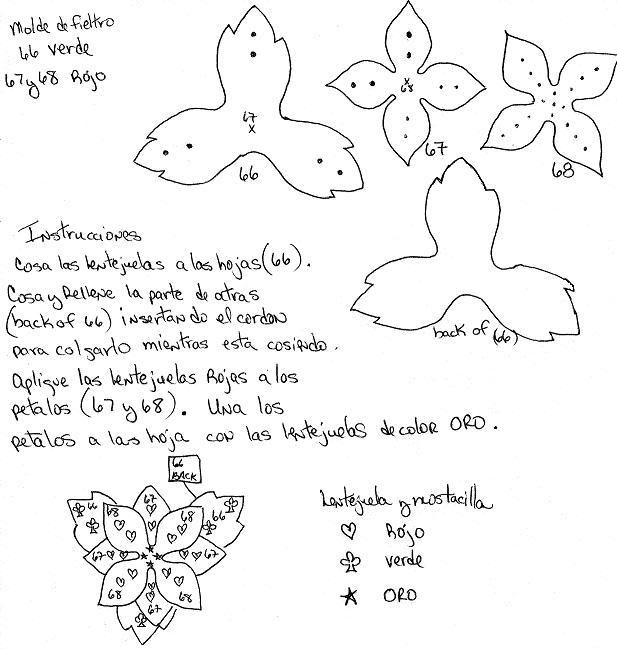 Molde de fieltro
66 verde
67 y 68 Rojo
67
X
66
X
68
67
68
back of (66)
Instrucciones
Cosa las lentejuelas a las hojas (66).
Cosa y Rellene la parte de atras
(back of 66) insertando el cordon
para colgarlo mientras esta cosiendo.
Aplique las lentejuelas Rojas a los
petalos (67 y 68). Una los
petalos a las hoja con las lentejuelas de color ORO.
66
BACK
66
67
66
68
68
67
67
68
68
67
Lentejuela y mostacilla
Rojo
verde
ORO